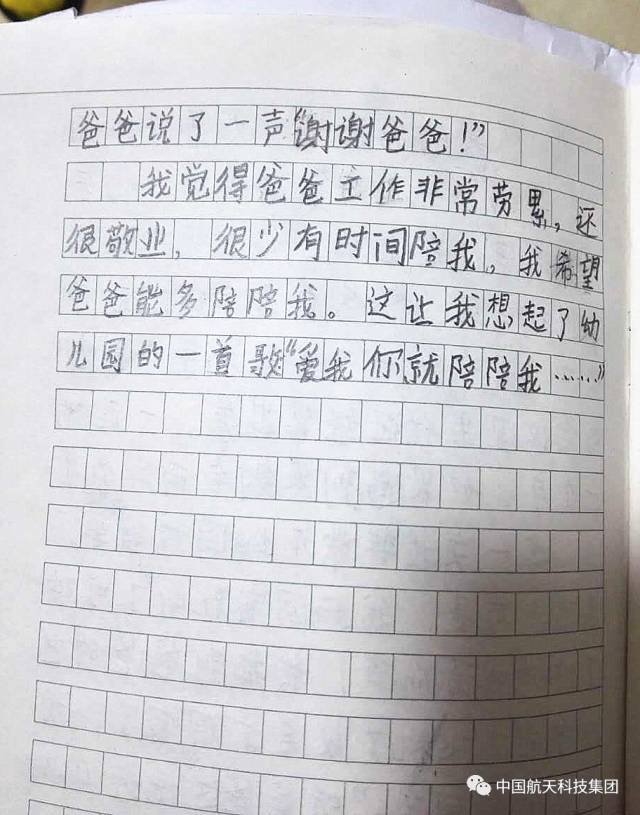 爸爸说了一声“谢谢爸爸！”
我觉得爸爸工作非常劳累，还
很敬业，很少有时间陪我，我希望
爸爸能多陪陪我。这让我想起了幼
儿园的一首歌“爱我你就陪陪我……”
中国航天科技集团